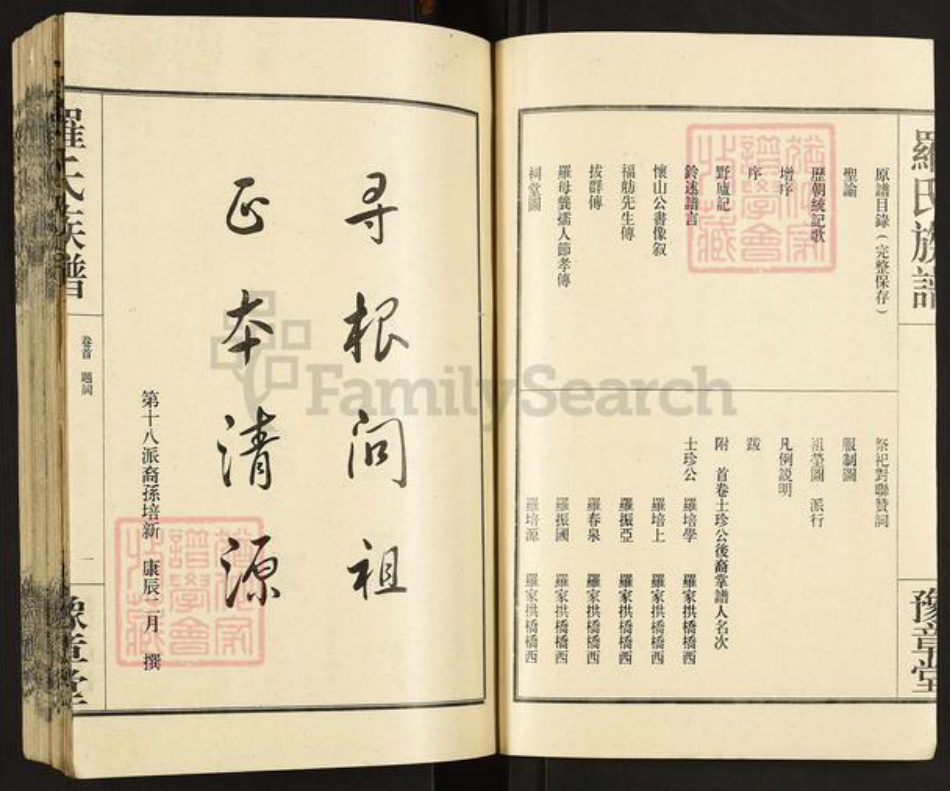 羅氏族譜
豫章堂
原譜目錄（完整保存）
聖諭
歷朝統記歌
增序
序
野廬記
鈴述譜言
懷山公書像叙
福舫先生傳
拔群傳
羅母龔孺人節孝傳
祠堂圖
祭祀對聯贊詞
服制圖
祖塋圖 派行
凡例説明
跋
附 首卷士珍公後裔掌譜人名次
士珍公 羅培學 羅家拱橋橋西
羅培上 羅家拱橋橋西
羅振亞 羅家拱橋橋西
羅春泉 羅家拱橋橋西
羅振國 羅家拱橋橋西
羅培源 羅家拱橋橋西
寻根问祖
正本清源
第十八派裔孫培新 康辰二月 撰
羅氏族譜
卷首 題詞
一
豫章堂
FamilySearch